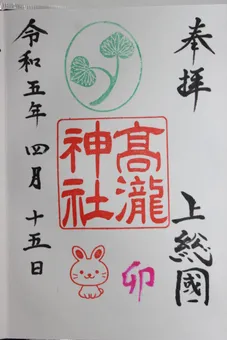 奉拝
上総國
高瀧
神社
卯
令和五年 四月 十五日